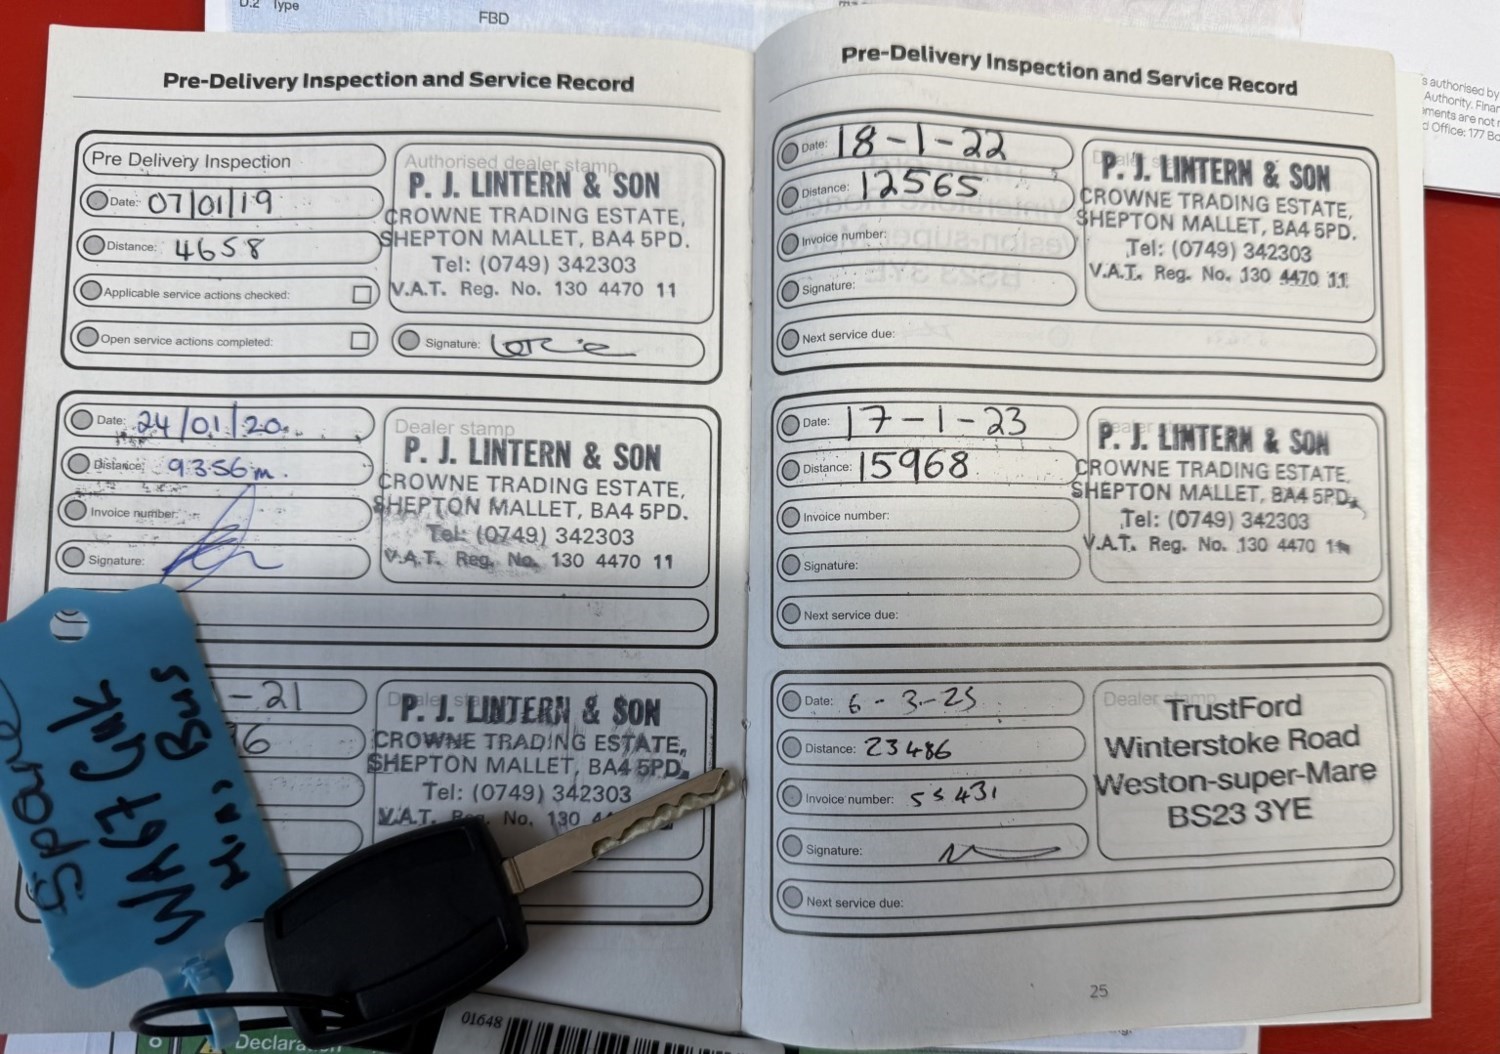 D.2 Type
FBD
Pre-Delivery Inspection and Service Record
Pre Delivery Inspection
Date: 07/01/19
Distance: 4658
Applicable service actions checked:
Open service actions completed:
Authorised dealer stamp
P. J. LINTERN & SON
CROWNE TRADING ESTATE,
SHEPTON MALLET, BA4 5PD.
Tel: (0749) 342303
V.A.T. Reg. No. 130 4470 11
Signature:
Date: 24/01/20
Distance: 9356m.
Invoice number:
Signature:
Dealer stamp
P. J. LINTERN & SON
CROWNE TRADING ESTATE,
SHEPTON MALLET, BA4 5PD.
Tel: (0749) 342303
V.A.T. Reg. No. 130 4470 11
-21
Dealer
P. J. LINTERN & SON
CROWNE TRADING ESTATE,
SHEPTON MALLET, BA4 5PD.
Tel: (0749) 342303
V.A.T. Reg. No. 130
Spare
WA67
Bus
01648
Pre-Delivery Inspection and Service Record
Date: 18-1-22
Distance: 12565
Invoice number:
Signature:
Next service due:
P. J. LINTERN & SON
CROWNE TRADING ESTATE,
SHEPTON MALLET, BA4 5PD.
Tel: (0749) 342303
V.A.T. Reg. No. 130 4470 11
Date: 17-1-23
Distance: 15968
Invoice number:
Signature:
Next service due:
P. J. LINTERN & SON
CROWNE TRADING ESTATE,
SHEPTON MALLET, BA4 5PD.
Tel: (0749) 342303
V.A.T. Reg. No. 130 4470 11
Date: 6-3-25
Distance: 23486
Invoice number: 55431
Signature:
Next service due:
Dealer stamp
TrustFord
Winterstoke Road
Weston-super-Mare
BS23 3YE
25
s authorised by
Authority. Finan
ments are not
d Office: 177